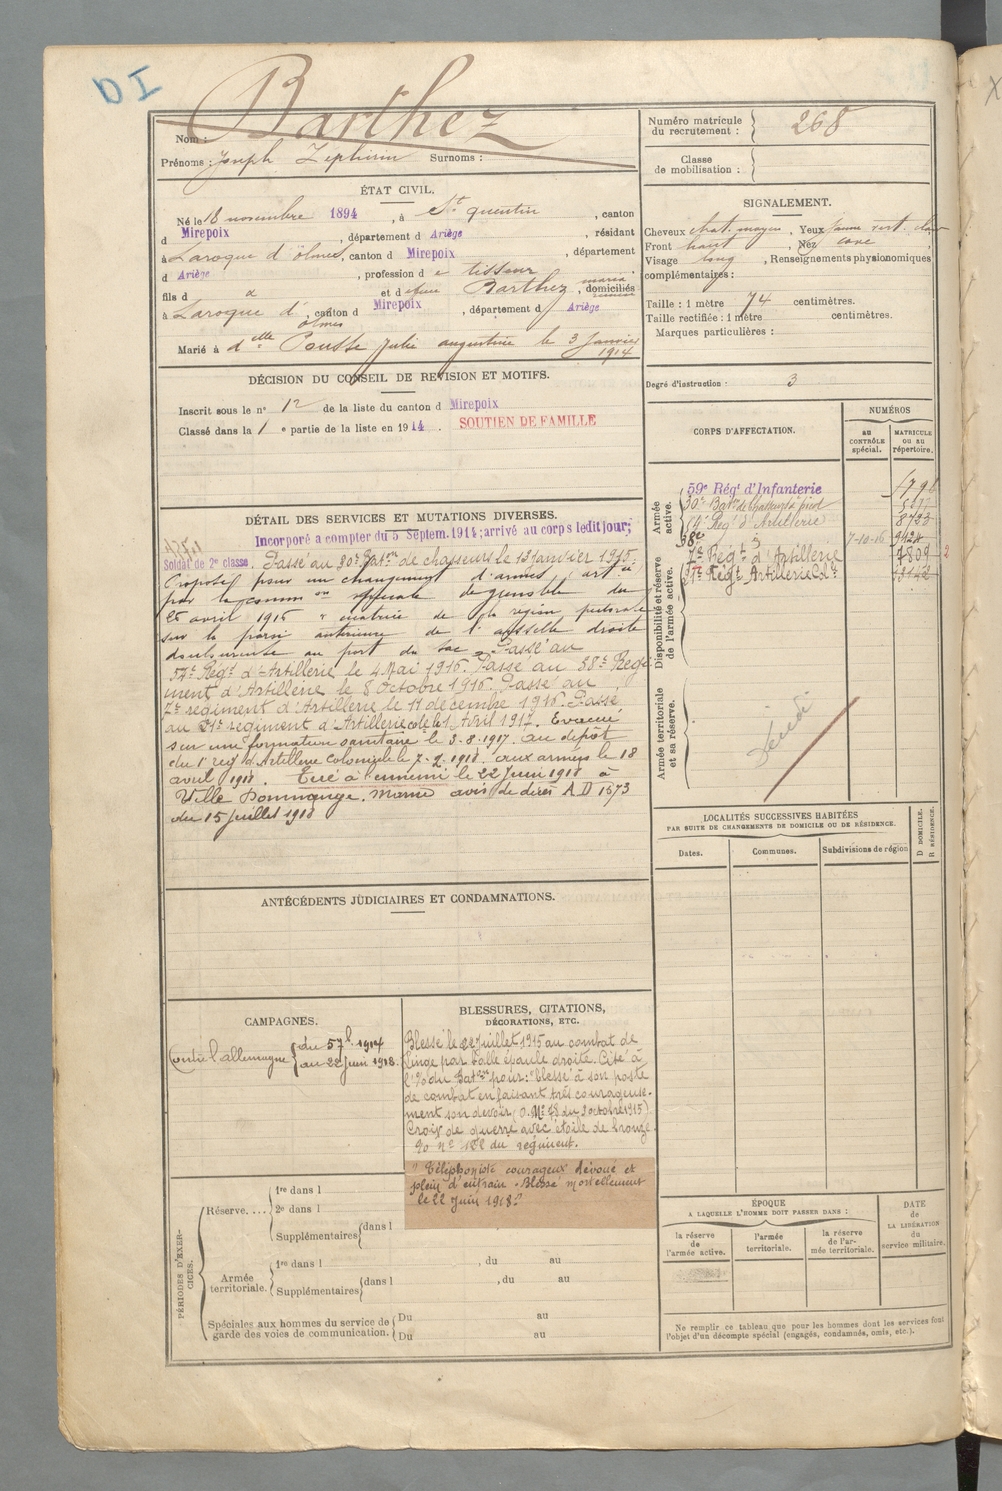 DI
Barthez
Nom :
Prénoms : Joseph Zéphirin Surnoms :
Numéro matricule du recrutement : 268
Classe de mobilisation :
ÉTAT CIVIL.
Né le 18 novembre 1894, à St quentin, canton
d Mirepoix, département d Ariège, résidant
à Laroque d'ölmes, canton d Mirepoix, département
d Ariège, profession d e tisseur
fils d et d Barthez maria, domiciliés
à Laroque d'ölmes, canton d Mirepoix, département d Ariège
Marié à dlle Pousse Julie augustine le 3 Janvier 1914
SIGNALEMENT.
Cheveux chat. moyen, Yeux jaune vert. clair
Front haut, Nez cave,
Visage long, Renseignements physionomiques
complémentaires :
Taille : 1 mètre 74 centimètres.
Taille rectifiée : 1 mètre centimètres.
Marques particulières :
Degré d'instruction : 3
DÉCISION DU CONSEIL DE REVISION ET MOTIFS.
Inscrit sous le n° 12 de la liste du canton d Mirepoix
Classé dans la 1 e partie de la liste en 1914. SOUTIEN DE FAMILLE
CORPS D'AFFECTATION.
NUMÉROS
AU CONTRÔLE spécial.
MATRICULE OU AU répertoire.
Armée active.
59e Régt d'Infanterie
30e Baton de Chasseurs à pied
54e Reg' d'Artillerie 8723
88e 7-10-16 9424
Disponibilité et réserve de l'armée active.
7e Régt d'Artillerie 1809
Régt Artillerie Cole
Armée territoriale et sa réserve.
DÉTAIL DES SERVICES ET MUTATIONS DIVERSES.
Incorporé a compter du 5 Septem. 1914; arrivé au corps ledit jour;
Soldat de 2e classe. Passé au 30e Baton de chasseurs le 13 Janvier 1915.
Proposé pour un changement d'armes, artie
par la common spéciale de grenoble du
26 avril 1916 " cicatrice de la région pectorale
sur la paroi antérieure de l'aisselle droite
douloureuse au port du sac " Passé au
54e Régt d'Artillerie le 4 Mai 1916. Passé au 88e Régi-
ment d'Artillerie le 8 Octobre 1916. Passé au
7e regiment d'Artillerie le 11 décembre 1916. Passé
au régiment d'Artillerie cole le 1 Avril 1917. Evacué
sur une formation sanitaire le 3-8-1917. au depot
du 1er reg d'Artillerie Coloniale le 7-2-1918. aux armées le 18
avril 1918. Tué à l'ennemi le 22 Juin 1918 à
Ville Dommange. Marne avis de décès A D 1673
du 15 juillet 1918
LOCALITÉS SUCCESSIVES HABITÉES
PAR SUITE DE CHANGEMENTS DE DOMICILE OU DE RÉSIDENCE.
Dates.
Communes.
Subdivisions de région
D DOMICILE.
R RÉSIDENCE.
ANTÉCÉDENTS JUDICIAIRES ET CONDAMNATIONS.
CAMPAGNES.
Contre l'allemagne du 5 7b. 1914
au 22 Juin 1918.
BLESSURES, CITATIONS,
DÉCORATIONS, ETC.
Blessé le 22 Juillet 1915 au combat de
Linge par balle épaule droite. Cité à
l'O du Baton pour: "blessé à son poste
de combat en faisant très courageuse-
ment son devoir (O. No 48 du 3 octobre 1915)
Croix de guerre avec étoile de bronze.
du régiment.
" Téléphoniste courageux dévoué et
plein d'entrain. Blessé mortellement
le 22 Juin 1918."
PÉRIODES D'EXERCICES.
Réserve....
1re dans l
2e dans l
Supplémentaires dans l
Armée territoriale.
1re dans l , du au
Supplémentaires dans l , du au
Spéciales aux hommes du service de garde des voies de communication.
Du au
Du au
ÉPOQUE
A LAQUELLE L'HOMME DOIT PASSER DANS :
la réserve de l'armée active.
l'armée territoriale.
la réserve de l'armée territoriale.
DATE de LA LIBÉRATION du service militaire.
Ne remplir ce tableau que pour les hommes dont les services font
l'objet d'un décompte spécial (engagés, condamnés, omis, etc.).